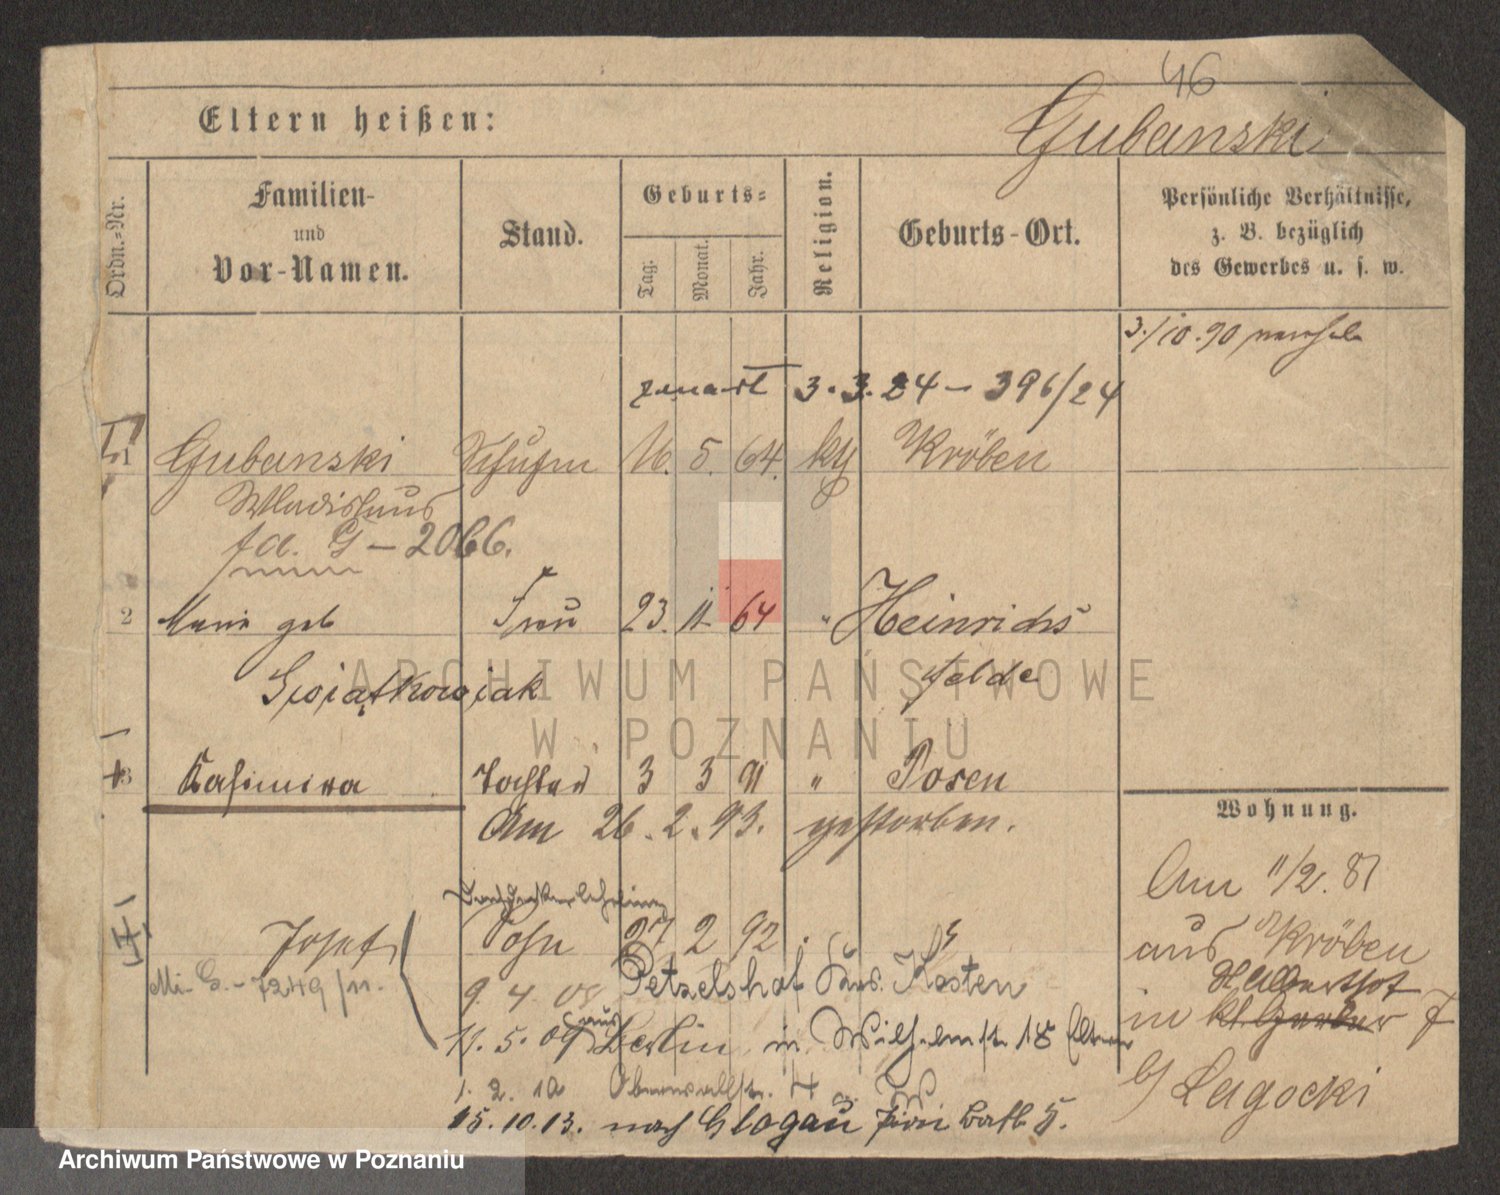 46
Eltern heißen:
Gubanski
Ordn.-Nr.
Familien-
und
Vor-Namen.
Stand.
Geburts-
Tag.
Monat.
Jahr.
Religion.
Geburts-Ort.
Persönliche Verhältnisse,
z. B. bezüglich
des Gewerbes u. s. w.
3./10.90
3.3.24 – 396/24
1 Gubanski 16. 5. 64. kg Kröben
Wladislaus
G – 2066.
2 Marie geb Frau 23. 11. 64 " Heinrichs
Swiątkowiak felde
3 Kasimira Tochter 3 3 91 " Posen
Am 26.2.93. gestorben.
Wohnung.
Am 11/2. 87
aus Kröben
Halbdorfstr
in kl. Gerber 7
b/ Lagocki
Josef Sohn 27 2 92
Mi. G. – 7249/11.
9. 4. 08 Petzelshof Krs. Kosten
11. 5. 09 aus Berlin in Wilhelmstr. 18 Eltern
1. 2. 10
15.10.13. nach Glogau Pion Batl 5.
ARCHIWUM PAŃSTWOWE
W POZNANIU
Archiwum Państwowe w Poznaniu